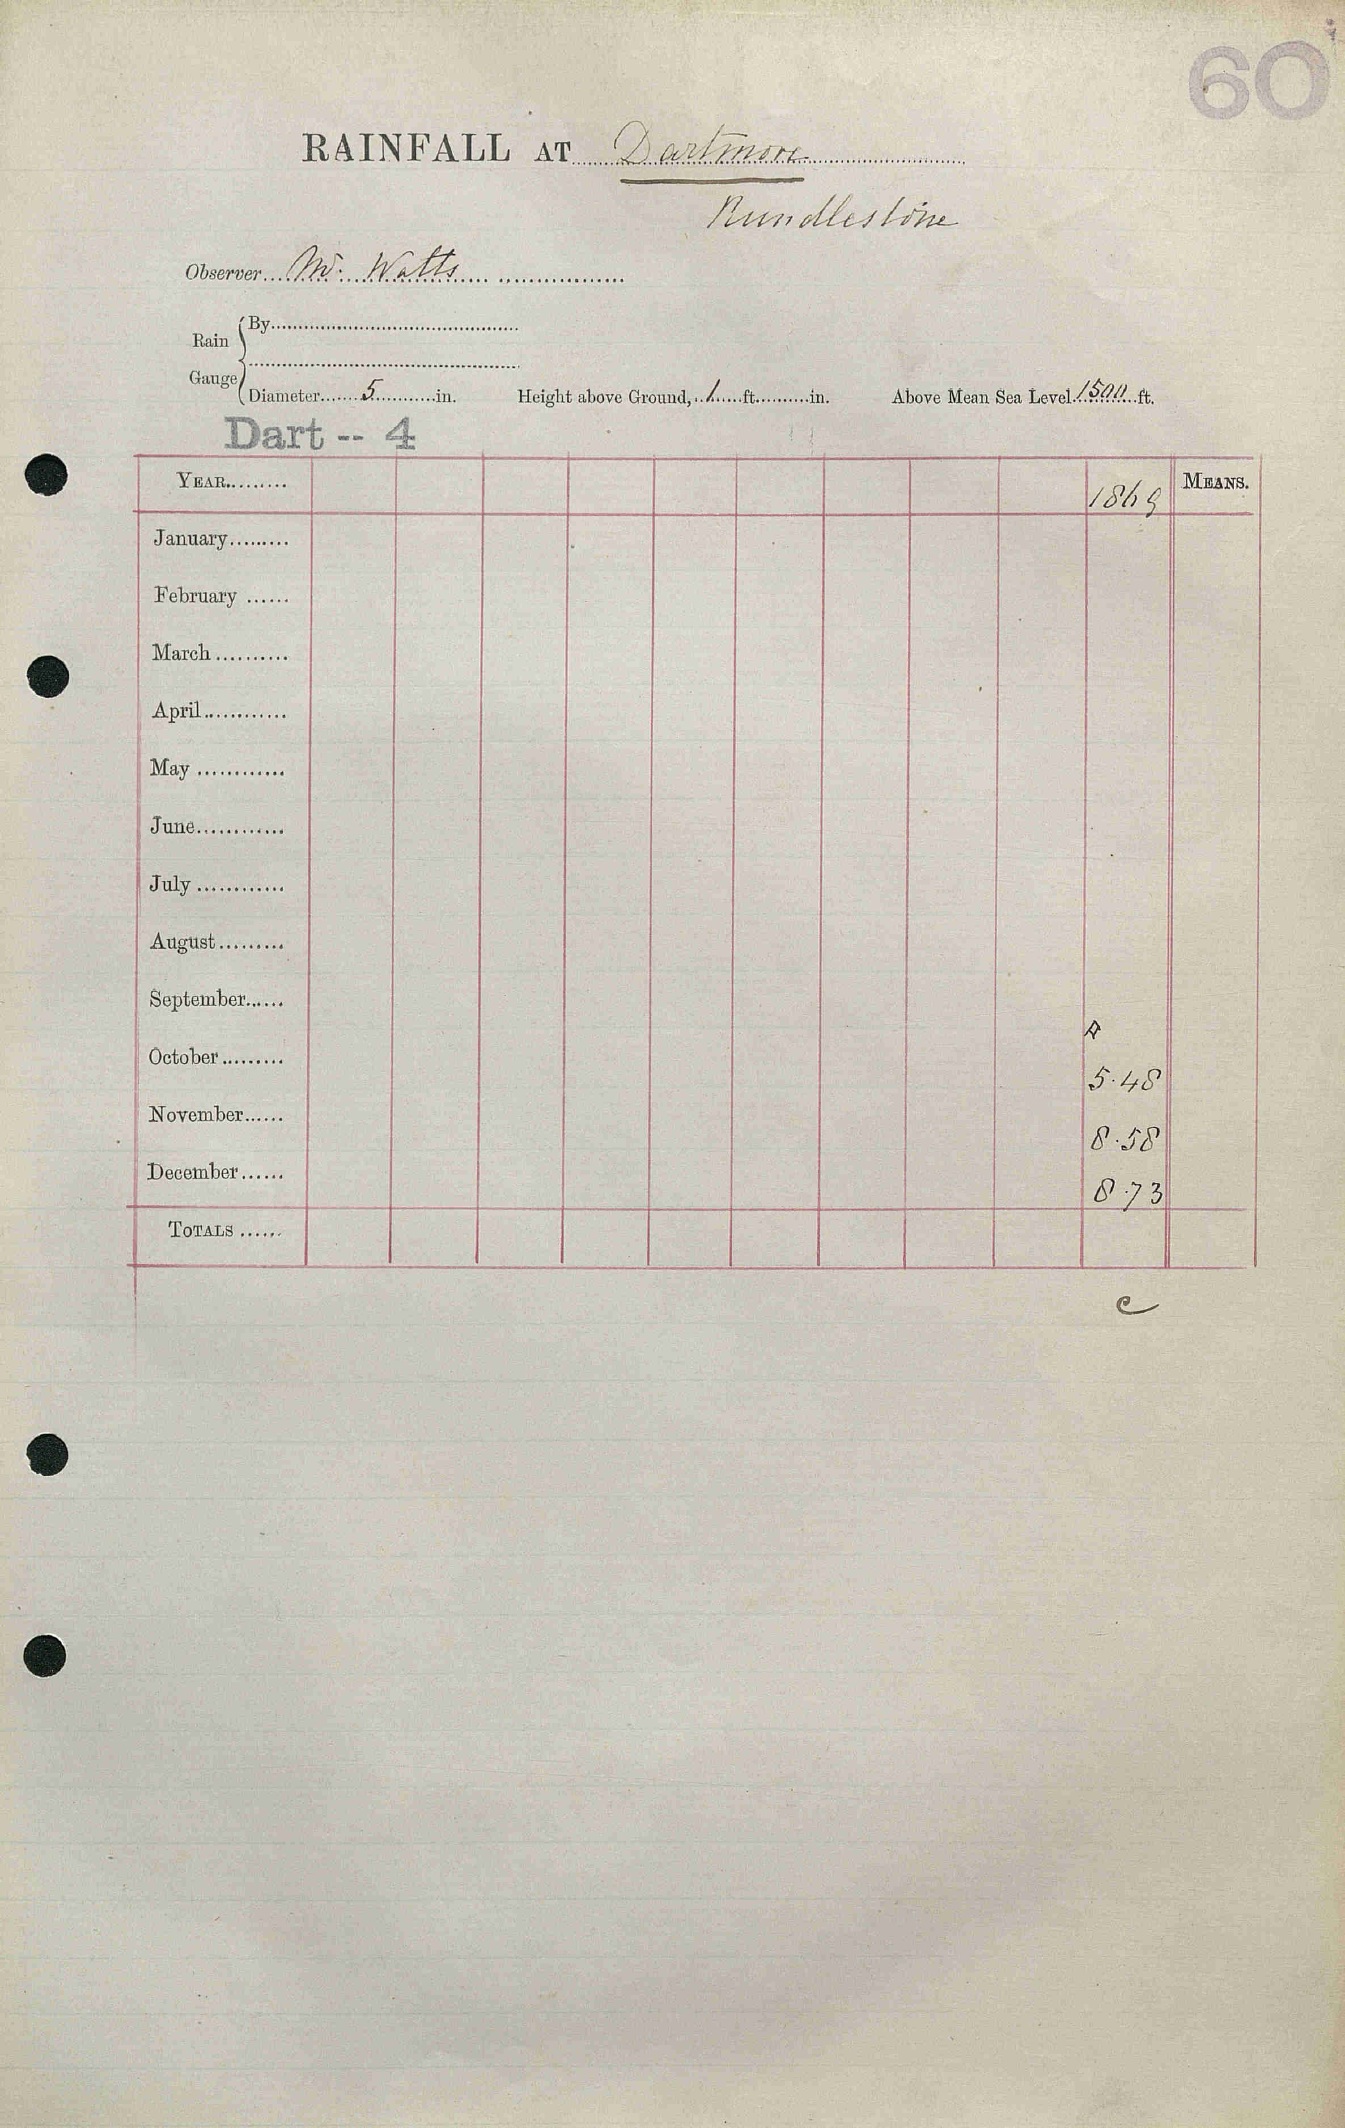 60
RAINFALL AT Dartmore
Rundlestone
Observer Mr. Watts
Rain Gauge
By
Diameter 5 in. Height above Ground, 1 ft. in. Above Mean Sea Level 1500 ft.
Dart -- 4
YEAR 1869 MEANS.
January
February
March
April
May
June
July
August
September
October 5.48
November 8.58
December 8.73
TOTALS
c